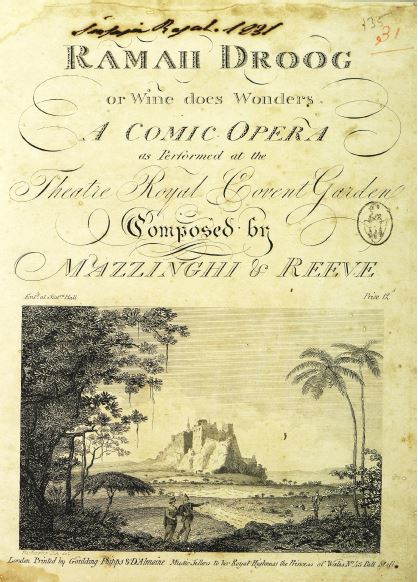 135
31
Royal. 1031
RAMAH DROOG
or Wine does Wonders
A COMIC OPERA
as Performed at the
Theatre Royal Covent Garden
Composed by
MAZZINGHI & REEVE
Ent.d at Stat.rs Hall
Price 12.s
London Printed by Goulding Phipps & D'Almaine Music Sellers to her Royal Highness the Princess of Wales No. 45 Pall Mall